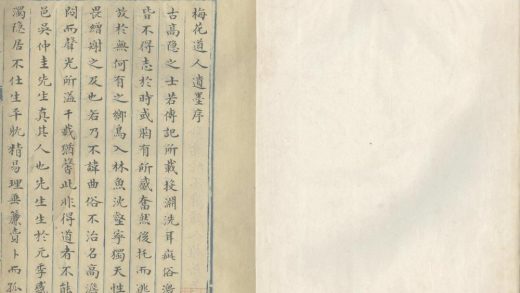 梅花道人遺墨序
古高隐之士若傳記所載投淵洗耳疵俗
皆不得志於時或胸有所感奮然後托而逃
於無何有之鄉鳥入林魚沈壑寧獨天性
畏繒謝之及也若乃不諱曲俗不治名高
悶而聲光所溢千載猶馨此非得道者不能
邑吳仲圭先生真其人也先生生於元季
濁隐居不仕生平躭精易理垂簾賣卜而孤